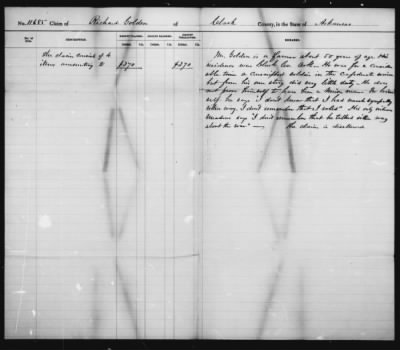 No. 11685 Claim of Richard Golden of Clark County, in the State of Arkansas
No. of Item. DESCRIPTION. AMOUNT CLAIMED. AMOUNT ALLOWED. AMOUNT DISALLOWED. REMARKS.
The claim consist of 4
items amounting to $270 $270
Mr. Golden is a farmer about 50 years of age. His
residence was Clark Co. Ark. He was for a consider
able time a conscripted soldier in the Confederate service
but from his own story did very little duty. He does
not prove himself to have been a Union man. He
self he says "I don't know that I had much sympathy
either way. I don't remember that I voted". His only
says "I don't remember that he talked either way
about the war". The claim is disallowed